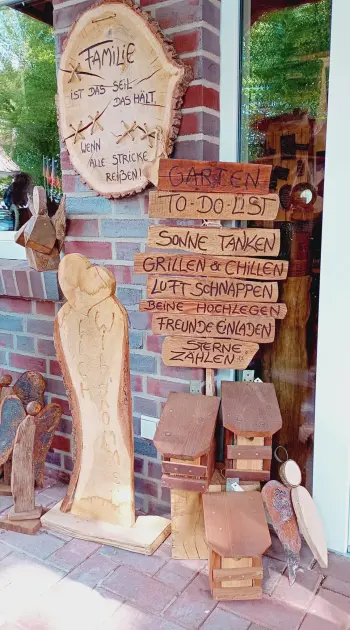 FAMILIE
IST DAS SEIL
DAS HÄLT,
WENN
ALLE STRICKE
REIßEN!
GARTEN
TO-DO-LIST
SONNE TANKEN
GRILLEN & CHILLEN
LUFT SCHNAPPEN
BEINE HOCHLEGEN
FREUNDE EINLADEN
STERNE
ZÄHLEN
WILLKOMMEN